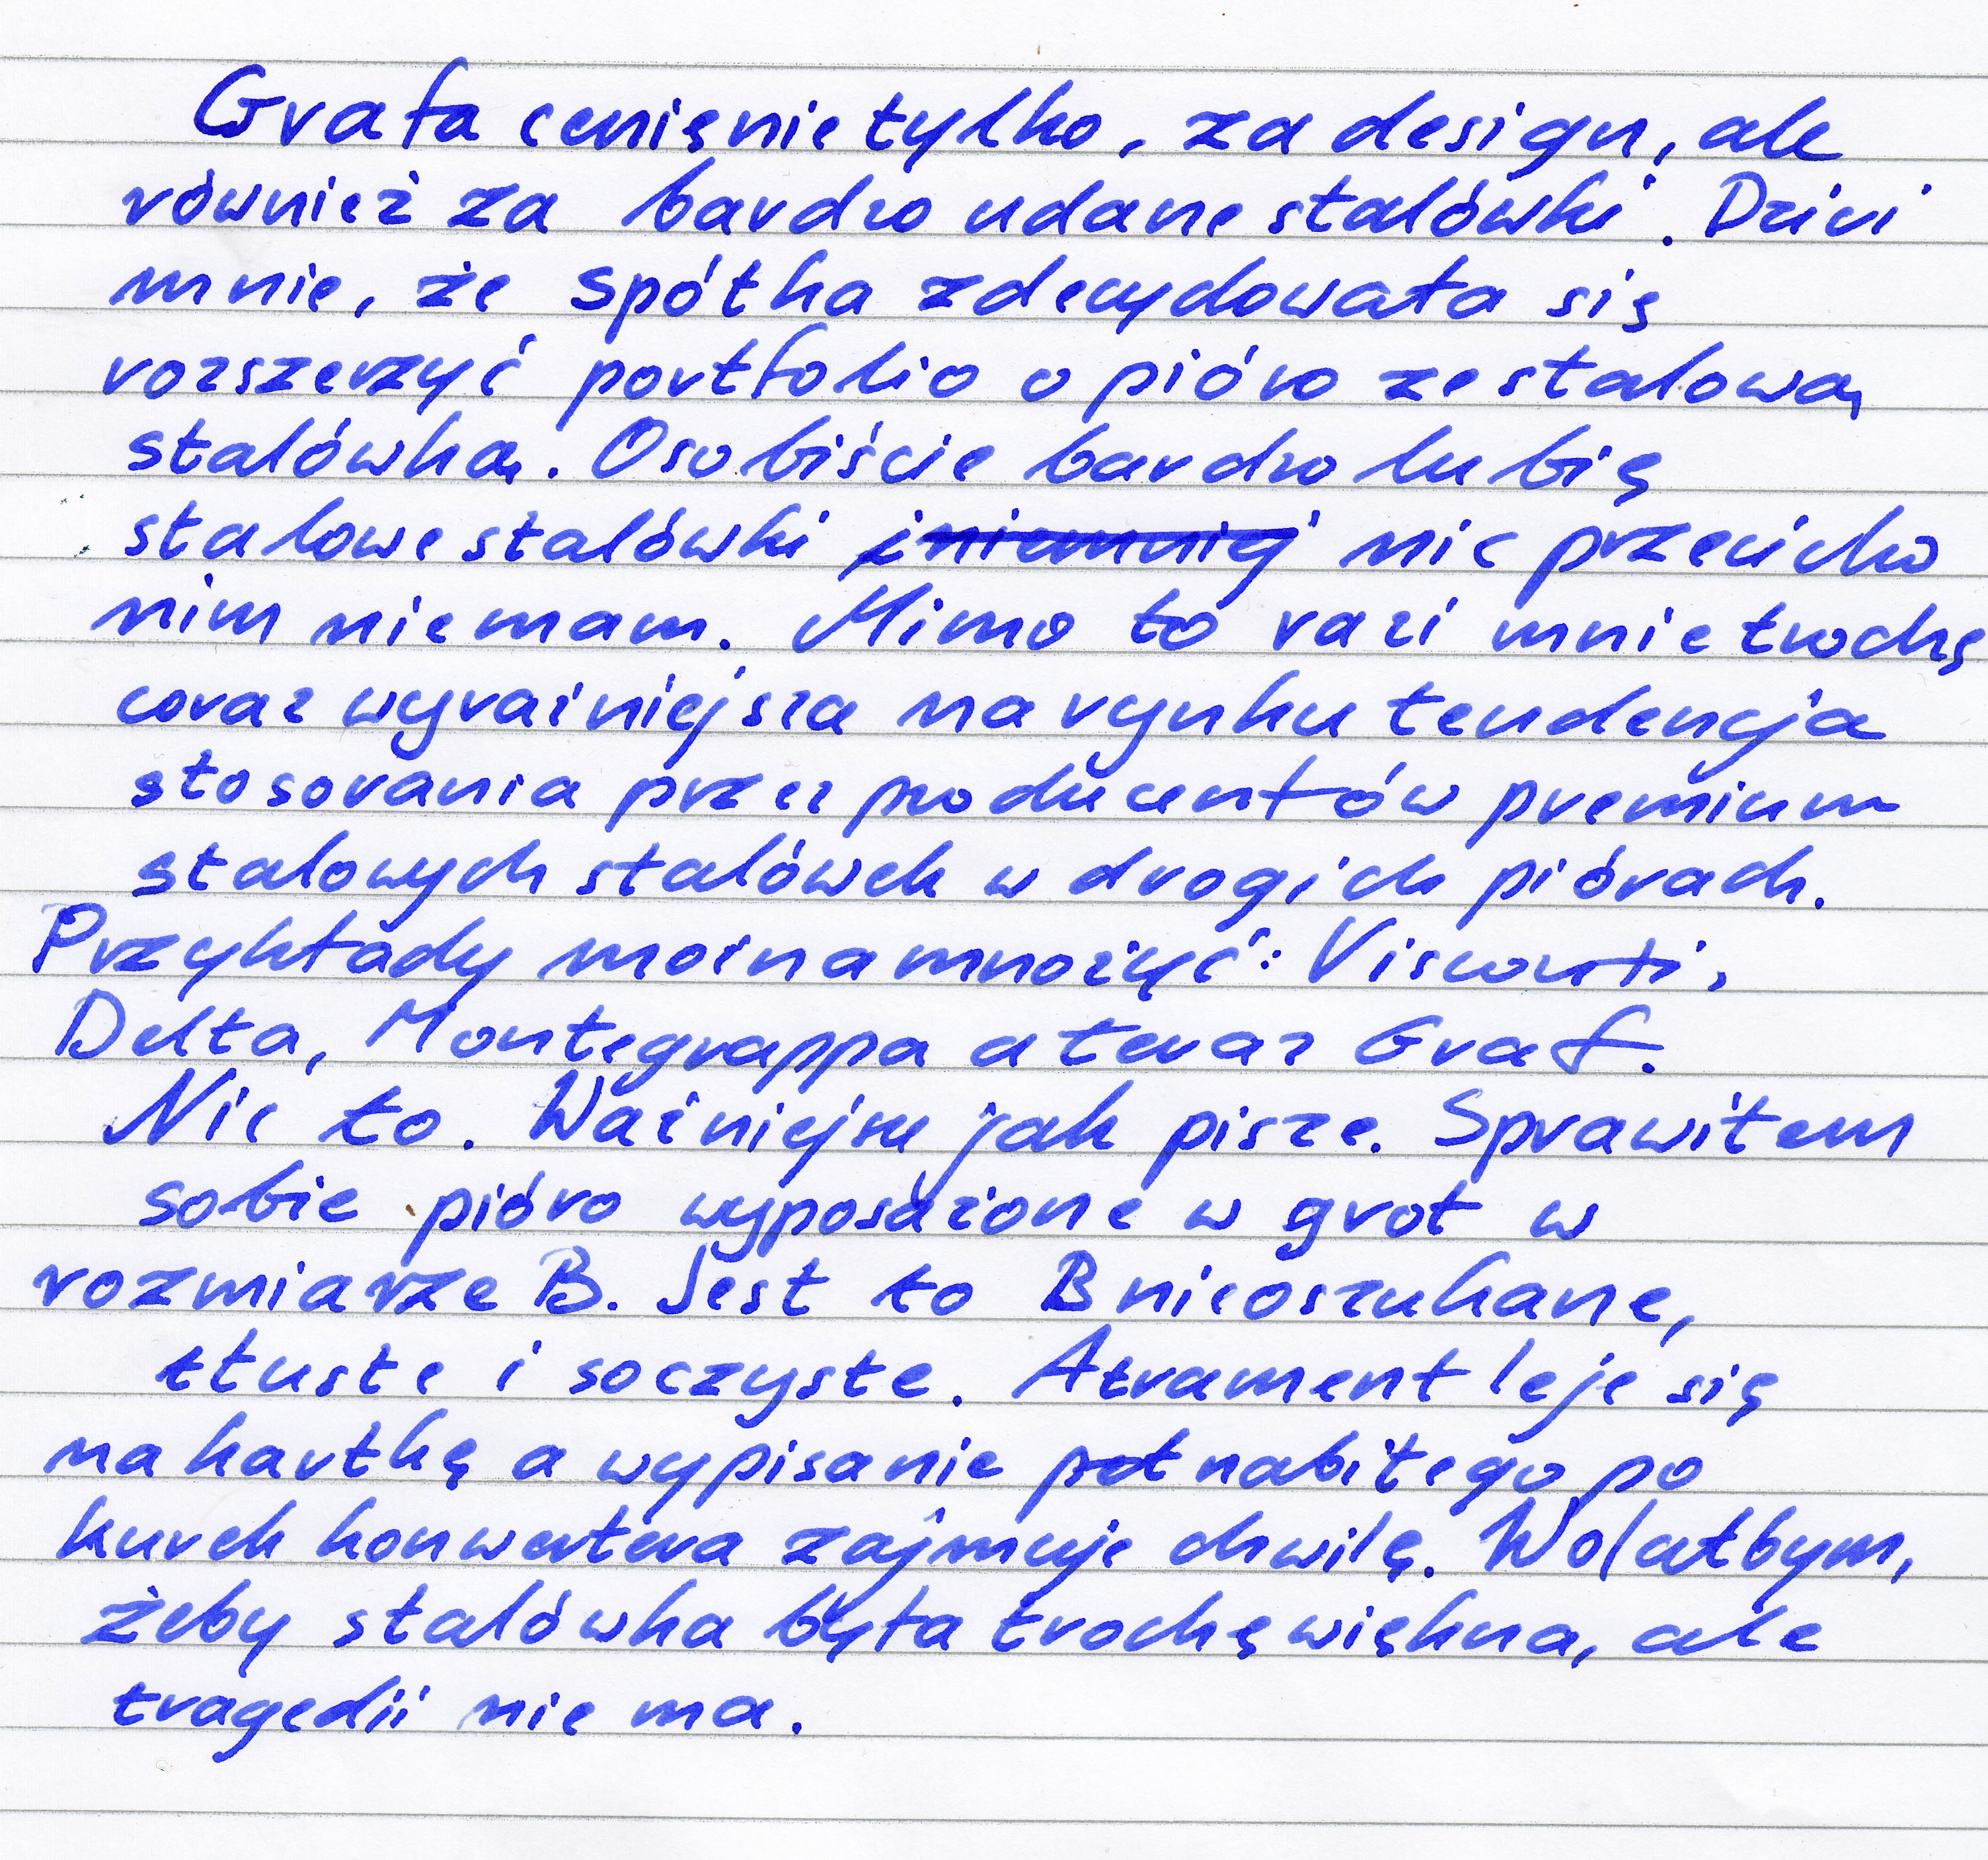 Grafa cenię nie tylko, za design, ale
również za bardzo udane stalówki. Dziwi
mnie, że spółka zdecydowała się
rozszerzyć portfolio o pióro ze stalową
stalówką. Osobiście bardzo lubię
stalowe stalówki i niemniej nic przeciwko
nim nie mam. Mimo to razi mnie trochę
coraz wyraźniejsza na rynku tendencja
stosowania przez producentów premium
stalowych stalówek w drogich piórach.
Przykłady można mnożyć: Visconti,
Delta, Montegrappa a teraz Graf.
Nic to. Ważniejsze jak pisze. Sprawiłem
sobie pióro wyposażone w grot w
rozmiarze B. Jest to B nieoszukane,
tłuste i soczyste. Atrament leje się
na kartkę a wypisanie nabitego po
kurek konwertera zajmuje chwilę. Wolałbym,
żeby stalówka była trochę większa, ale
tragedii nie ma.